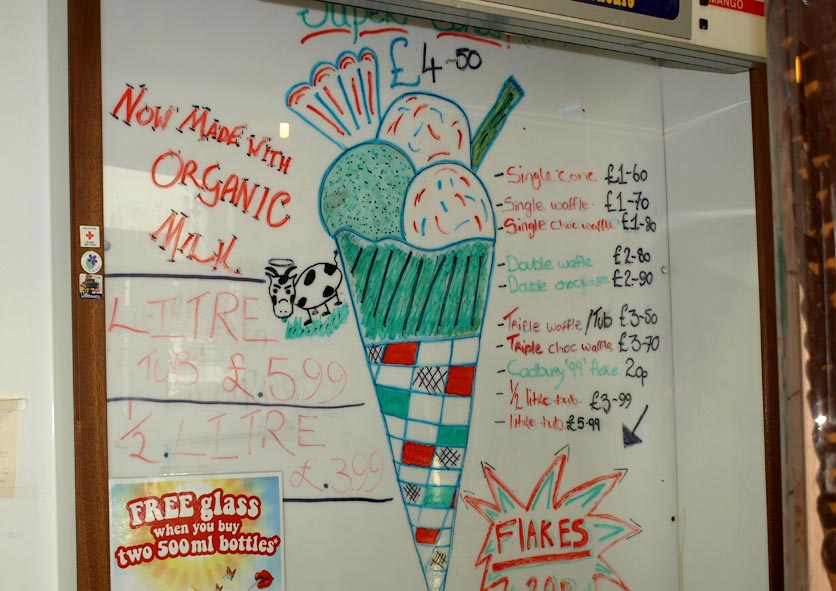 Super Cones!
£4-50
MANGO
NOW MADE WITH
ORGANIC
MILK.
LITRE
TUB £5.99
1/2 LITRE
£3.99
- Single cone £1-60
- Single waffle £1-70
- Single choc waffle £1-80
- Double waffle £2-80
- Double choc waffle £2-90
- Triple waffle/Tub £3-50
- Triple choc waffle £3-70
- Cadbury '99' flake 20p
- 1/2 litre tub £3-99
- litre tub £5-99
FREE glass
when you buy
two 500ml bottles*
FLAKES
20p